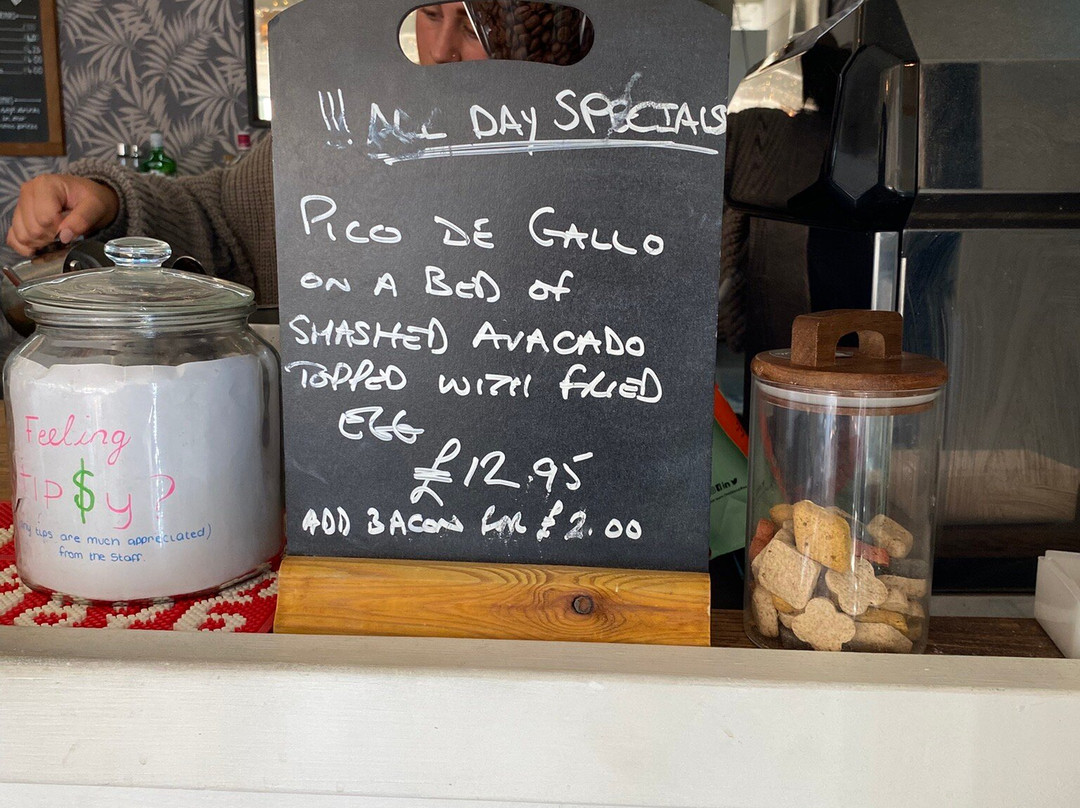 !!! ALL DAY SPECIALS
PICO DE GALLO
ON A BED Of
SMASHED AVACADO
TOPPED WITH FRIED
EGG
£12.95
ADD BACON FOR £2.00
Feeling
TIP$Y?
(Any tips are much appreciated)
from the Staff.